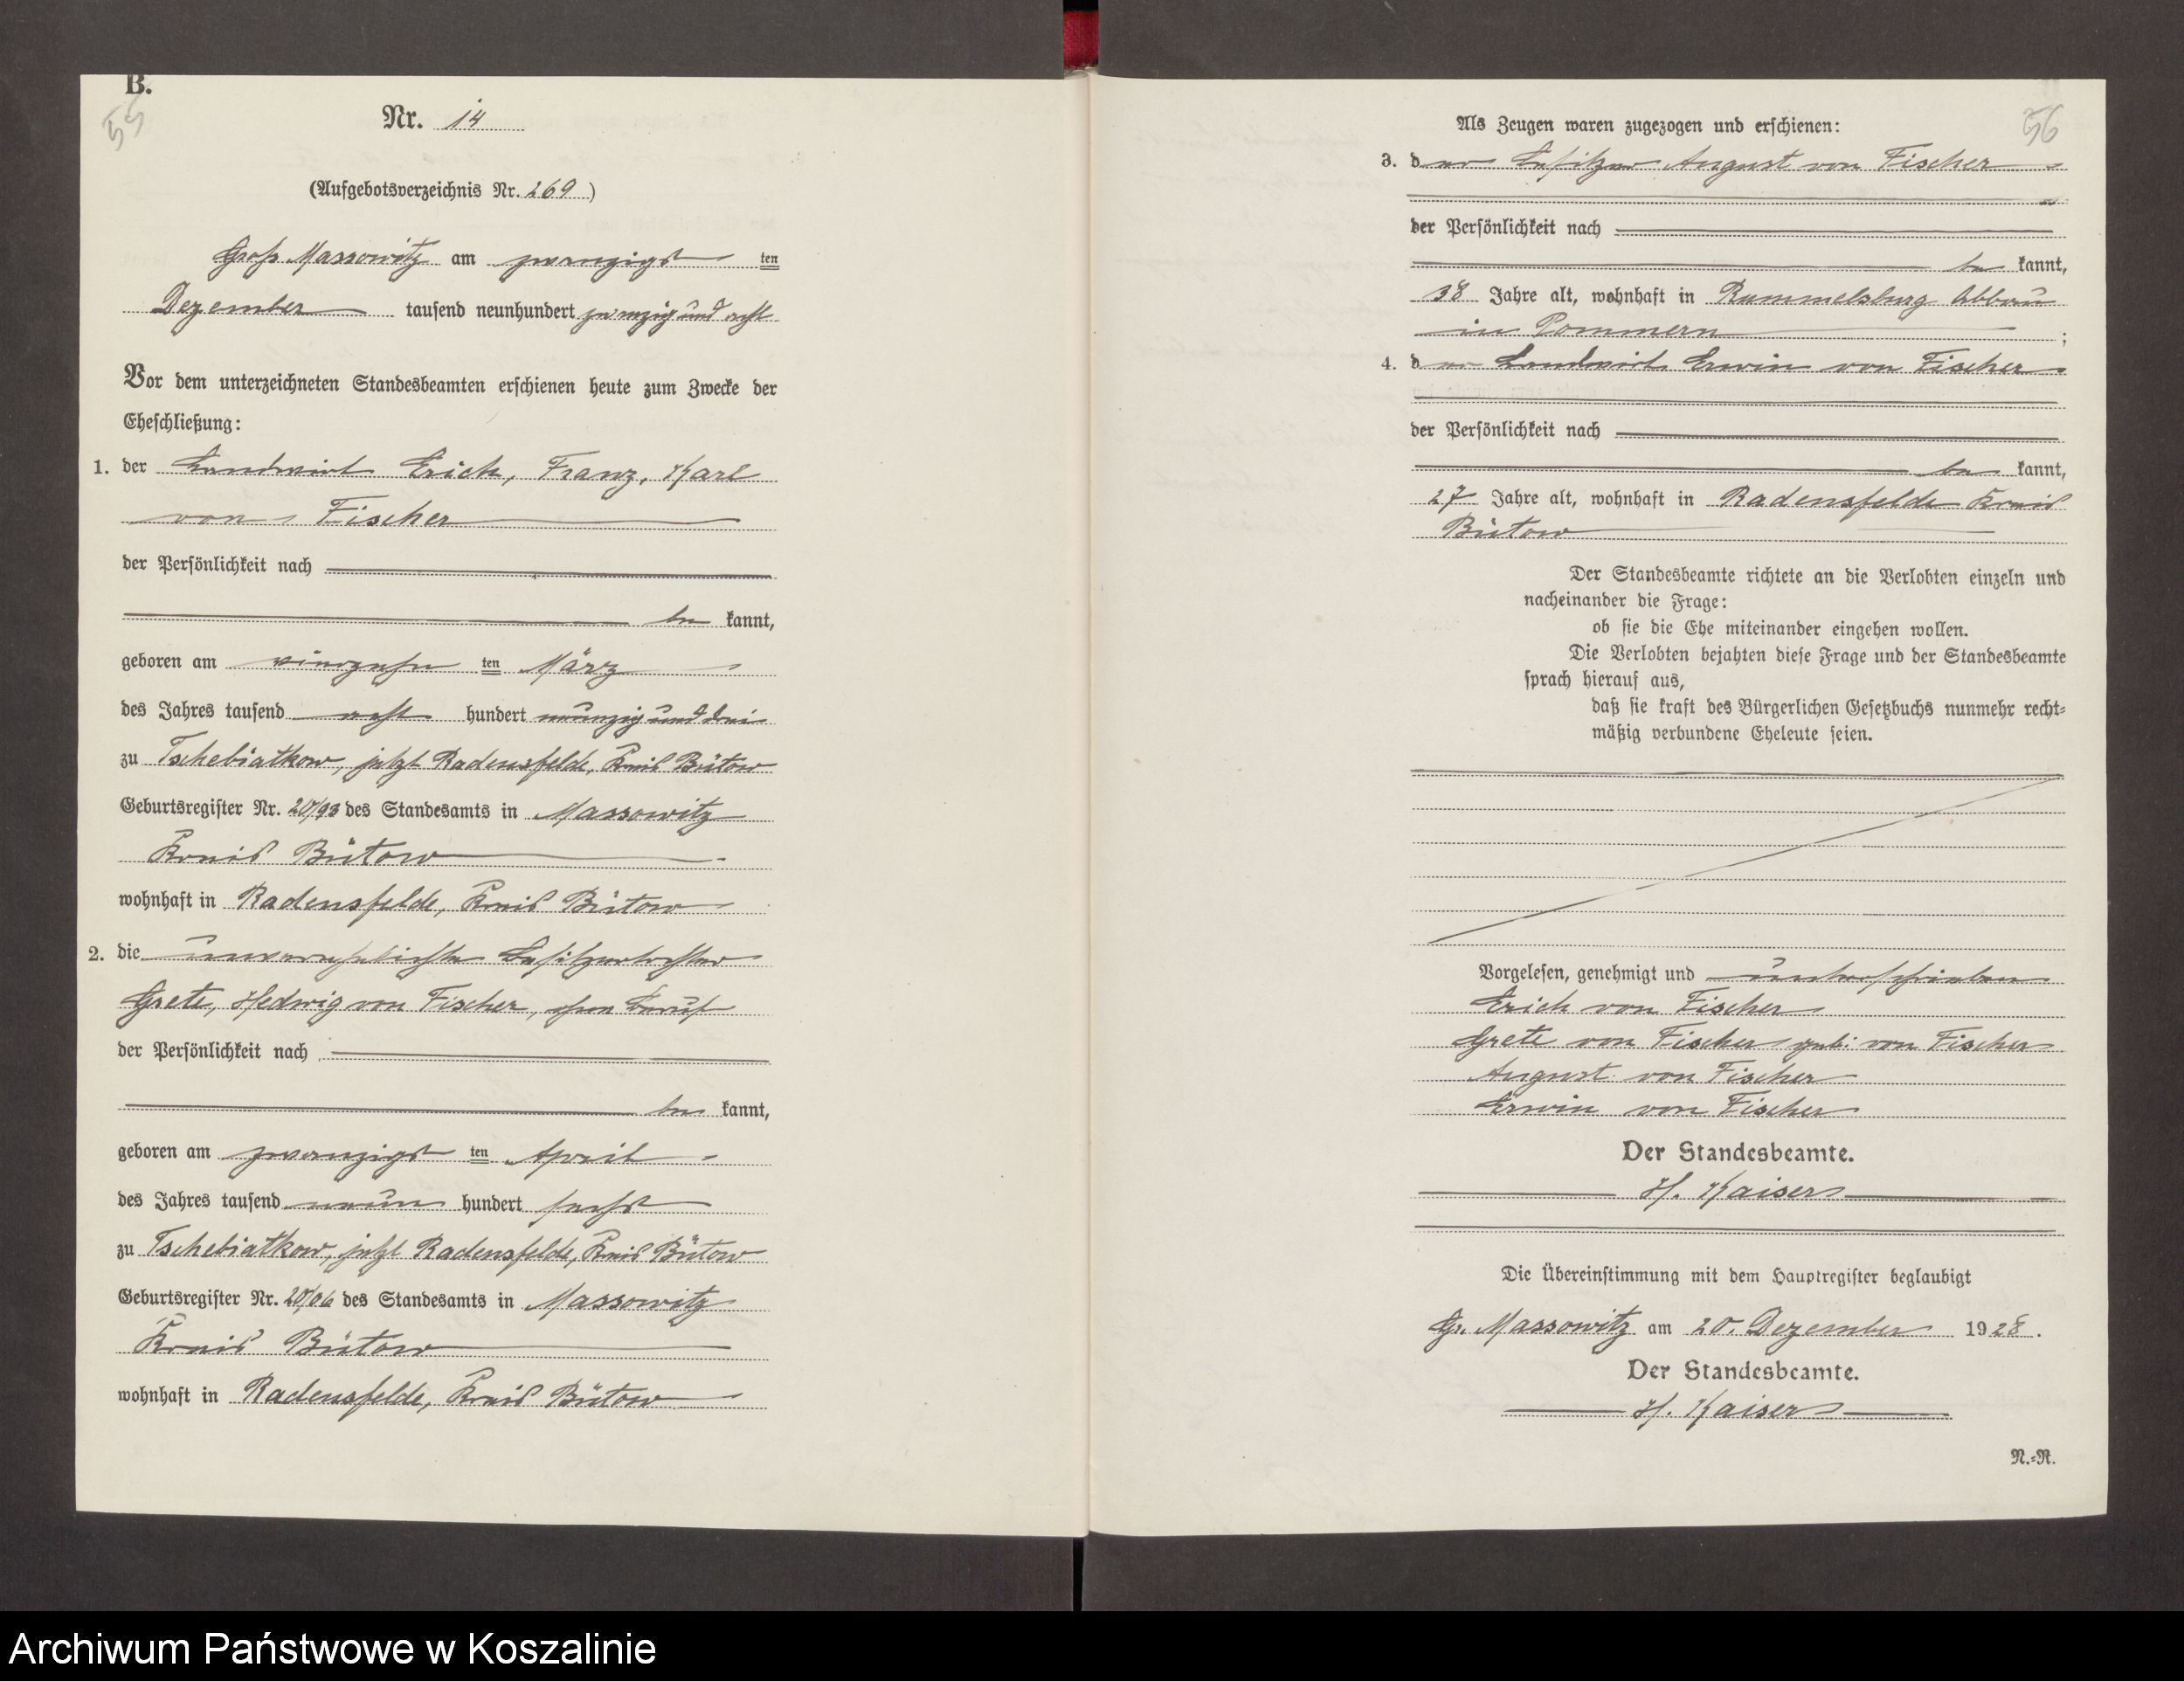 B.
55
Nr. 14
(Aufgebotsverzeichnis Nr. 269)
Groß Massowitz am zwanzigst ten
Dezember tausend neunhundert zwanzig und acht
Vor dem unterzeichneten Standesbeamten erschienen heute zum Zwecke der
Eheschließung:
1. der Landwirt Erich, Franz, Karl
von Fischer
der Persönlichkeit nach
be kannt,
geboren am vierzehn ten März
des Jahres tausend acht hundert neunzig und drei
zu Tschebiatkow, jetzt Radensfelde, Kreis Bütow
Geburtsregister Nr. 20/93 des Standesamts in Massowitz
Kreis Bütow
wohnhaft in Radensfelde, Kreis Bütow
2. die unverehelichte Besitzertochter
Grete, Hedwig von Fischer, ohne Beruf
der Persönlichkeit nach
be kannt,
geboren am zwanzigst ten April
des Jahres tausend neun hundert sechs
zu Tschebiatkow, jetzt Radensfelde, Kreis Bütow
Geburtsregister Nr. 20/06 des Standesamts in Massowitz
Kreis Bütow
wohnhaft in Radensfelde, Kreis Bütow
56
Als Zeugen waren zugezogen und erschienen:
3. der Besitzer August von Fischer
der Persönlichkeit nach
be kannt,
38 Jahre alt, wohnhaft in Rummelsburg Abbau
in Pommern ;
4. der Landwirt Erwin von Fischer
der Persönlichkeit nach
be kannt,
27 Jahre alt, wohnhaft in Radensfelde Kreis
Bütow
Der Standesbeamte richtete an die Verlobten einzeln und
nacheinander die Frage:
ob sie die Ehe miteinander eingehen wollen.
Die Verlobten bejahten diese Frage und der Standesbeamte
sprach hierauf aus,
daß sie kraft des Bürgerlichen Gesetzbuchs nunmehr recht-
mäßig verbundene Eheleute seien.
Vorgelesen, genehmigt und unterschrieben
Erich von Fischer
Grete von Fischer geb: von Fischer
August von Fischer
Erwin von Fischer
Der Standesbeamte.
H. Kaiser
Die Übereinstimmung mit dem Hauptregister beglaubigt
Gr. Massowitz am 20. Dezember 1928.
Der Standesbeamte.
H. Kaiser
N.-R.
Archiwum Państwowe w Koszalinie